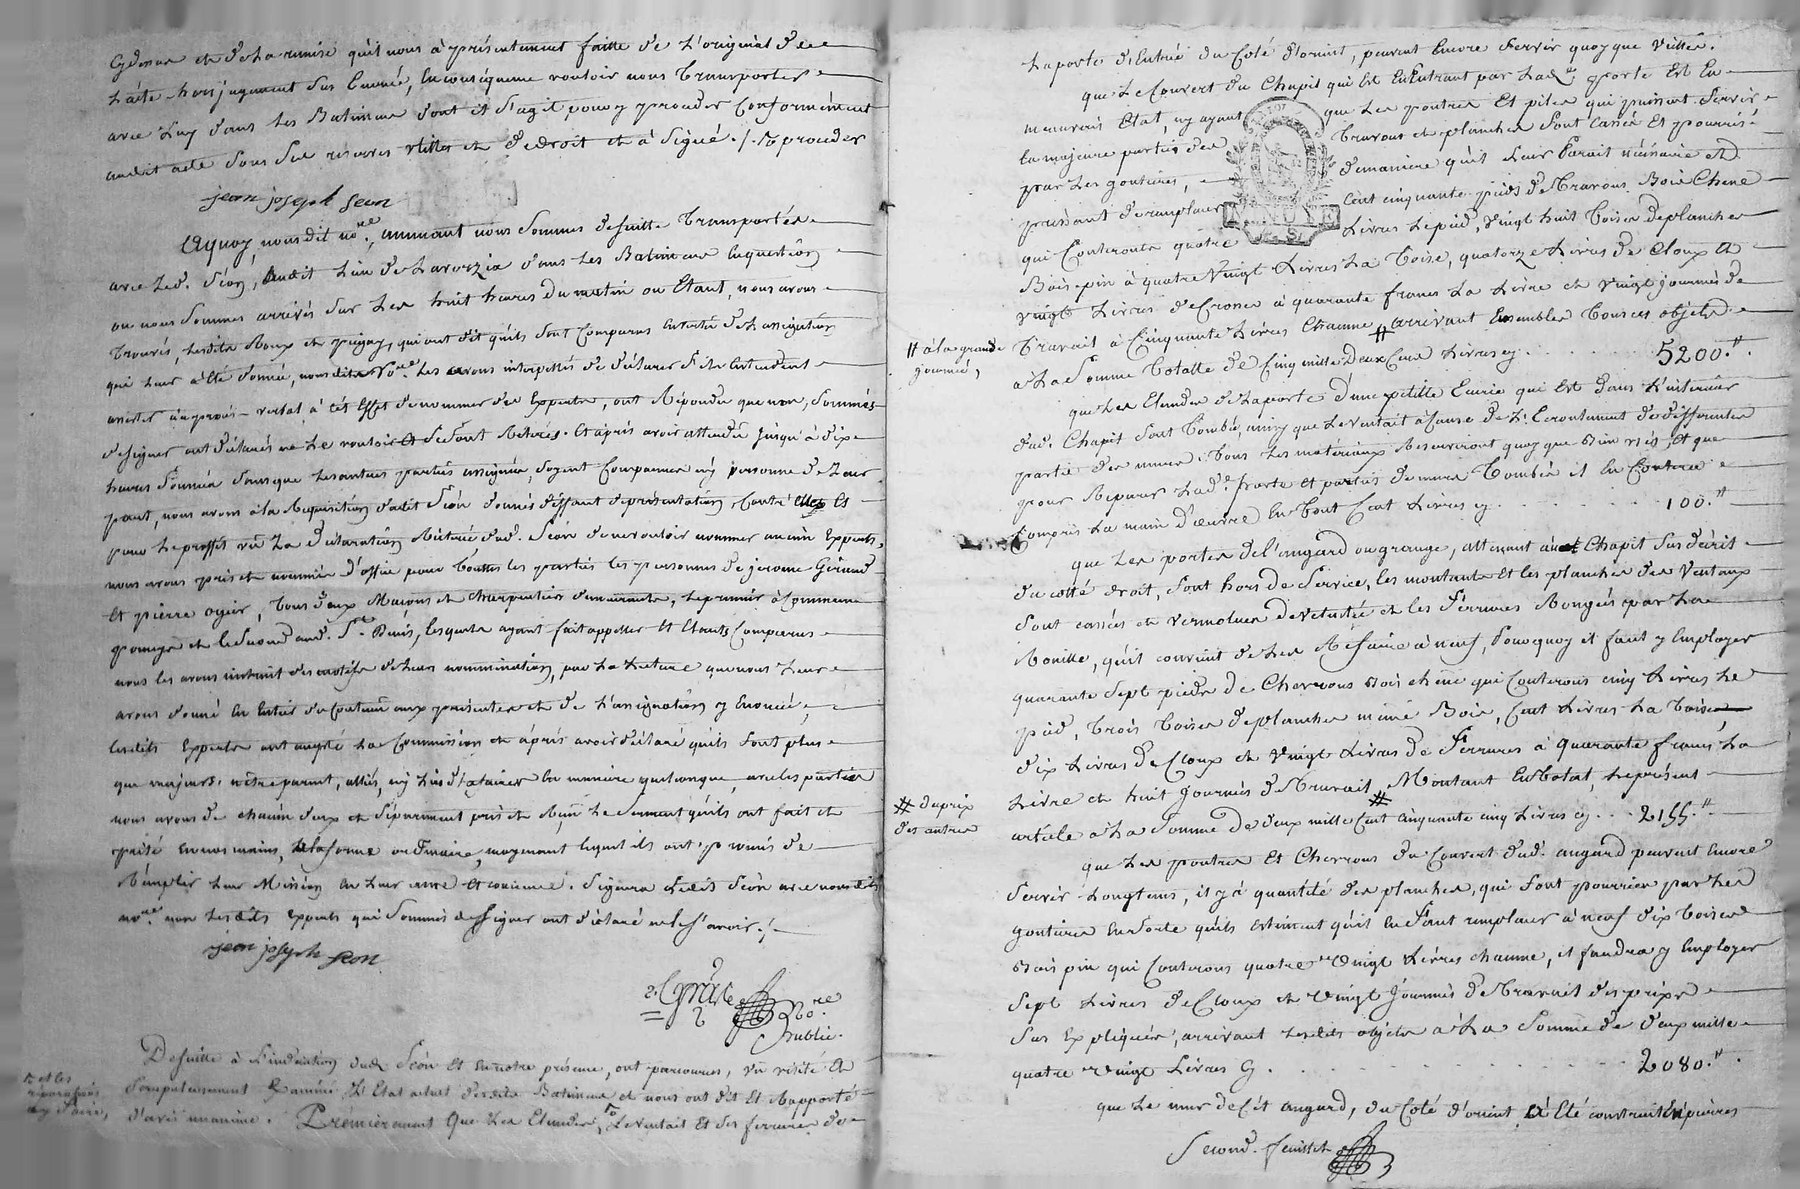 Cydessus et de la remise qu'il nous à présentement faitte de l'original de
l'acte hors jugement sus Enoncé, En conséquence vouloir nous Transporter
avec Luy dans Les Batiments dont il s'agit pour y proceder Conformément
audit acte sous ses reserves utilles et de droit et à signé ./. proceder
jean joseph seon
Aquoy, nousdit no.re, nous sommes desuitte Transportés
avec Led. Séon, audit Lieu de dans Les Batiments En question
ou nous sommes arrivés sur Les huit heures du matin ou Etant, nous avons
Trouvés, Lesdits Roux et qui ont dit qu'ils sont Comparus En vertu de L'assignation
qui Leur a été donnée, nousdit No.re Les avons interpellés de déclarer s'ils Entendent
assister à nommer des Experts, ont Répondu que non, sommés
designer ont déclarés ne Le vouloir Et se sont Retirés. Et après avoir attendu jusqu'à dix
heures sonnées sans que Les autres parties assignées, soyent Comparues ny personne de Leur
part, nous avons à la Requisition dudit Séon donnés deffaut Contre Elles Et
pour Le proffit vu La déclaration Réiterée dud. Séon de ne vouloir nommer aucuns Experts,
nous avons pris et nommés d'office pour Touttes les parties les personnes de jerome Géraud
Et pierre ogier, Tous deux Maçons et Charpentiers demeurants, le premier à Commune
et le second aud. S.t Denis, lesquels ayant fait appeller Et Etants Comparus
nous les avons instruit des motifs de Leurs nomination, par La Lecture que nous Leur
avons donné En Entier du Contenu aux presentes et de L'assignation y Enoncée,
Lesdits Experts ont accepté La Commission et après avoir déclaré qu'ils sont plus
que majeurs n'être parent, alliés, ny En maniere quelconque, avec les parties
nous avons de chacun d'eux et séparement pris et Reçu Le serment qu'ils ont fait et
prêté En nos mains, En la forme ordinaire, moyenant lequel ils ont promis de
Remplir Leur Mission En Leur ame Et concience. Signera Ledit Séon avec nousdit
no.re non Lesdits Experts qui sommés de signer ont déclaré ne le sçavoir ./.
jean joseph seon
No.re
Public.
Desuitte à L'indication dud. Séon Et En notre présence, ont parcourus, vu visité Et
et les réparations à y faire,
Scrupuleusement Examiné L'Etat actuel desdits Batiments et nous ont dit Et Rapporté
d'avis unanime. Premièrement Que Les Elandes, Le ventail Et les ferrures de
La porte d'Entrée du Coté d'orient, peuvent Encore servir quoy que vielles.
que Le Couvert du Chapit qui Est En Entrant par Lad. porte Est En
mauvais Etat, ny ayant que Les poutres Et piles qui puissent servir
La majeure partie des Travons et planches sont Cassés Et pourris
par Les goutieres, de maniere qu'il leur Parait nécéssaire Et
pressant de remplacer Cent cinquante pieds de Travons Bois Chene
NATIONALE
qui Couterons quatre Livres Le pied, Vingt huit Toises de planches
Bois pin à quatre Vingt Livres La Toise, quatorze Livres de Cloux Et
vingt Livres de Crosses à quarante francs La Livre et vingt journées de
Travail à Cinquante Livres Chacune # arrivant Ensembles Tous ces objets
# à la grande journée,
à La Somme Totalle de Cinq mille Deux Cens Livres cy . . . . 5200.#.
que Les Elandes de La porte d'une petitte Ecurie qui Est Dans L'interieur
dud. Chapit sont Tombés, ainsy que Le ventail à Cause de L'Ecroulement de différentes
partie des murs. Tous Les matériaux Reserviront quoy que Bien usés, Et que
pour Réparer Lad. porte Et parties de murs Tombés il En Coutera
Compris La main d'œuvre En Tout Cent Livres cy . . . . . 100.#
que Les portes de l'angard ou grange, attenant au Chapit sus décrit
du cotté droit, sont hors de Service, les montants Et les planches des Ventaux
sont cassés et vermolues de vetusté et les ferrures Rongées par La
Rouille, qu'il convient de Les Réfaire à neuf, Pourquoy il faut y Employer
quarante sept pieds de Chevrons Bois chene qui Couterons cinq Livres Le
pied, Trois Toises de planches même Bois, Cent Livres La Toise,
dix Livres de Cloux et vingt Livres de ferrures à quarante francs La
Livre et huit journées de Travail # Montant En total, Le présent
# du prix des autres
article à La Somme de Deux mille Cent cinquante cinq Livres cy . . . 2155.#
que Les poutres Et Chevrons du Couvert dud. angard peuvent Encore
Servir Longtems, il y à quantité des planches, qui sont pourries par Les
goutieres En sorte qu'ils estiment qu'il En faut remplacer à neuf dix Toises
Bois pin qui Couterons quatre Vingt Livres chacune, il faudra y Employer
Sept Livres de Cloux et vingt journées de Travail des prix
Sus Expliqués, arrivant Lesdits objets à La Somme de Deux mille
quatre Vingt Livres cy . . . . . . 2080.#.
que Le mur de cet angard, du Coté d'orient à Eté construit En pierres
Second. feuillet